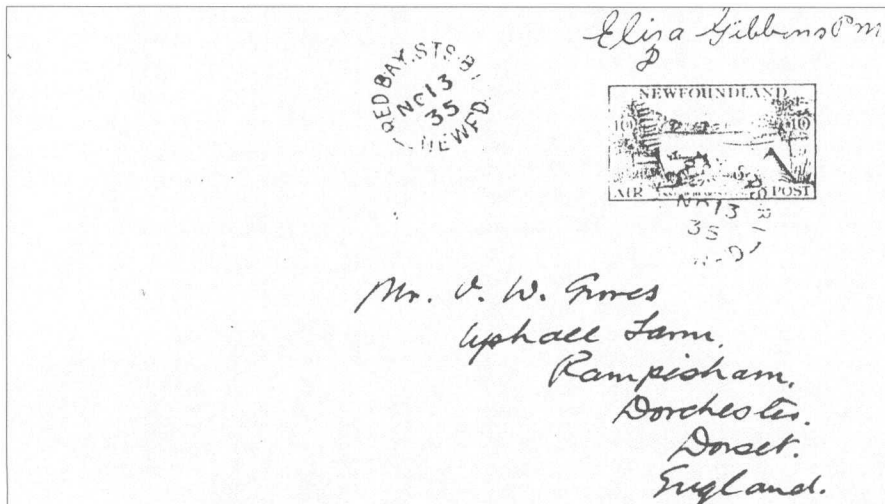 Eliza Gibbons Pm
RED BAY. STS. B I
NO 13
35
NEWFD.
NEWFOUNDLAND
10 10
AIR POST
NO 13
35
Mr. W. Groves
Uphall Farm,
Rampisham,
Dorchester.
Dorset.
England.